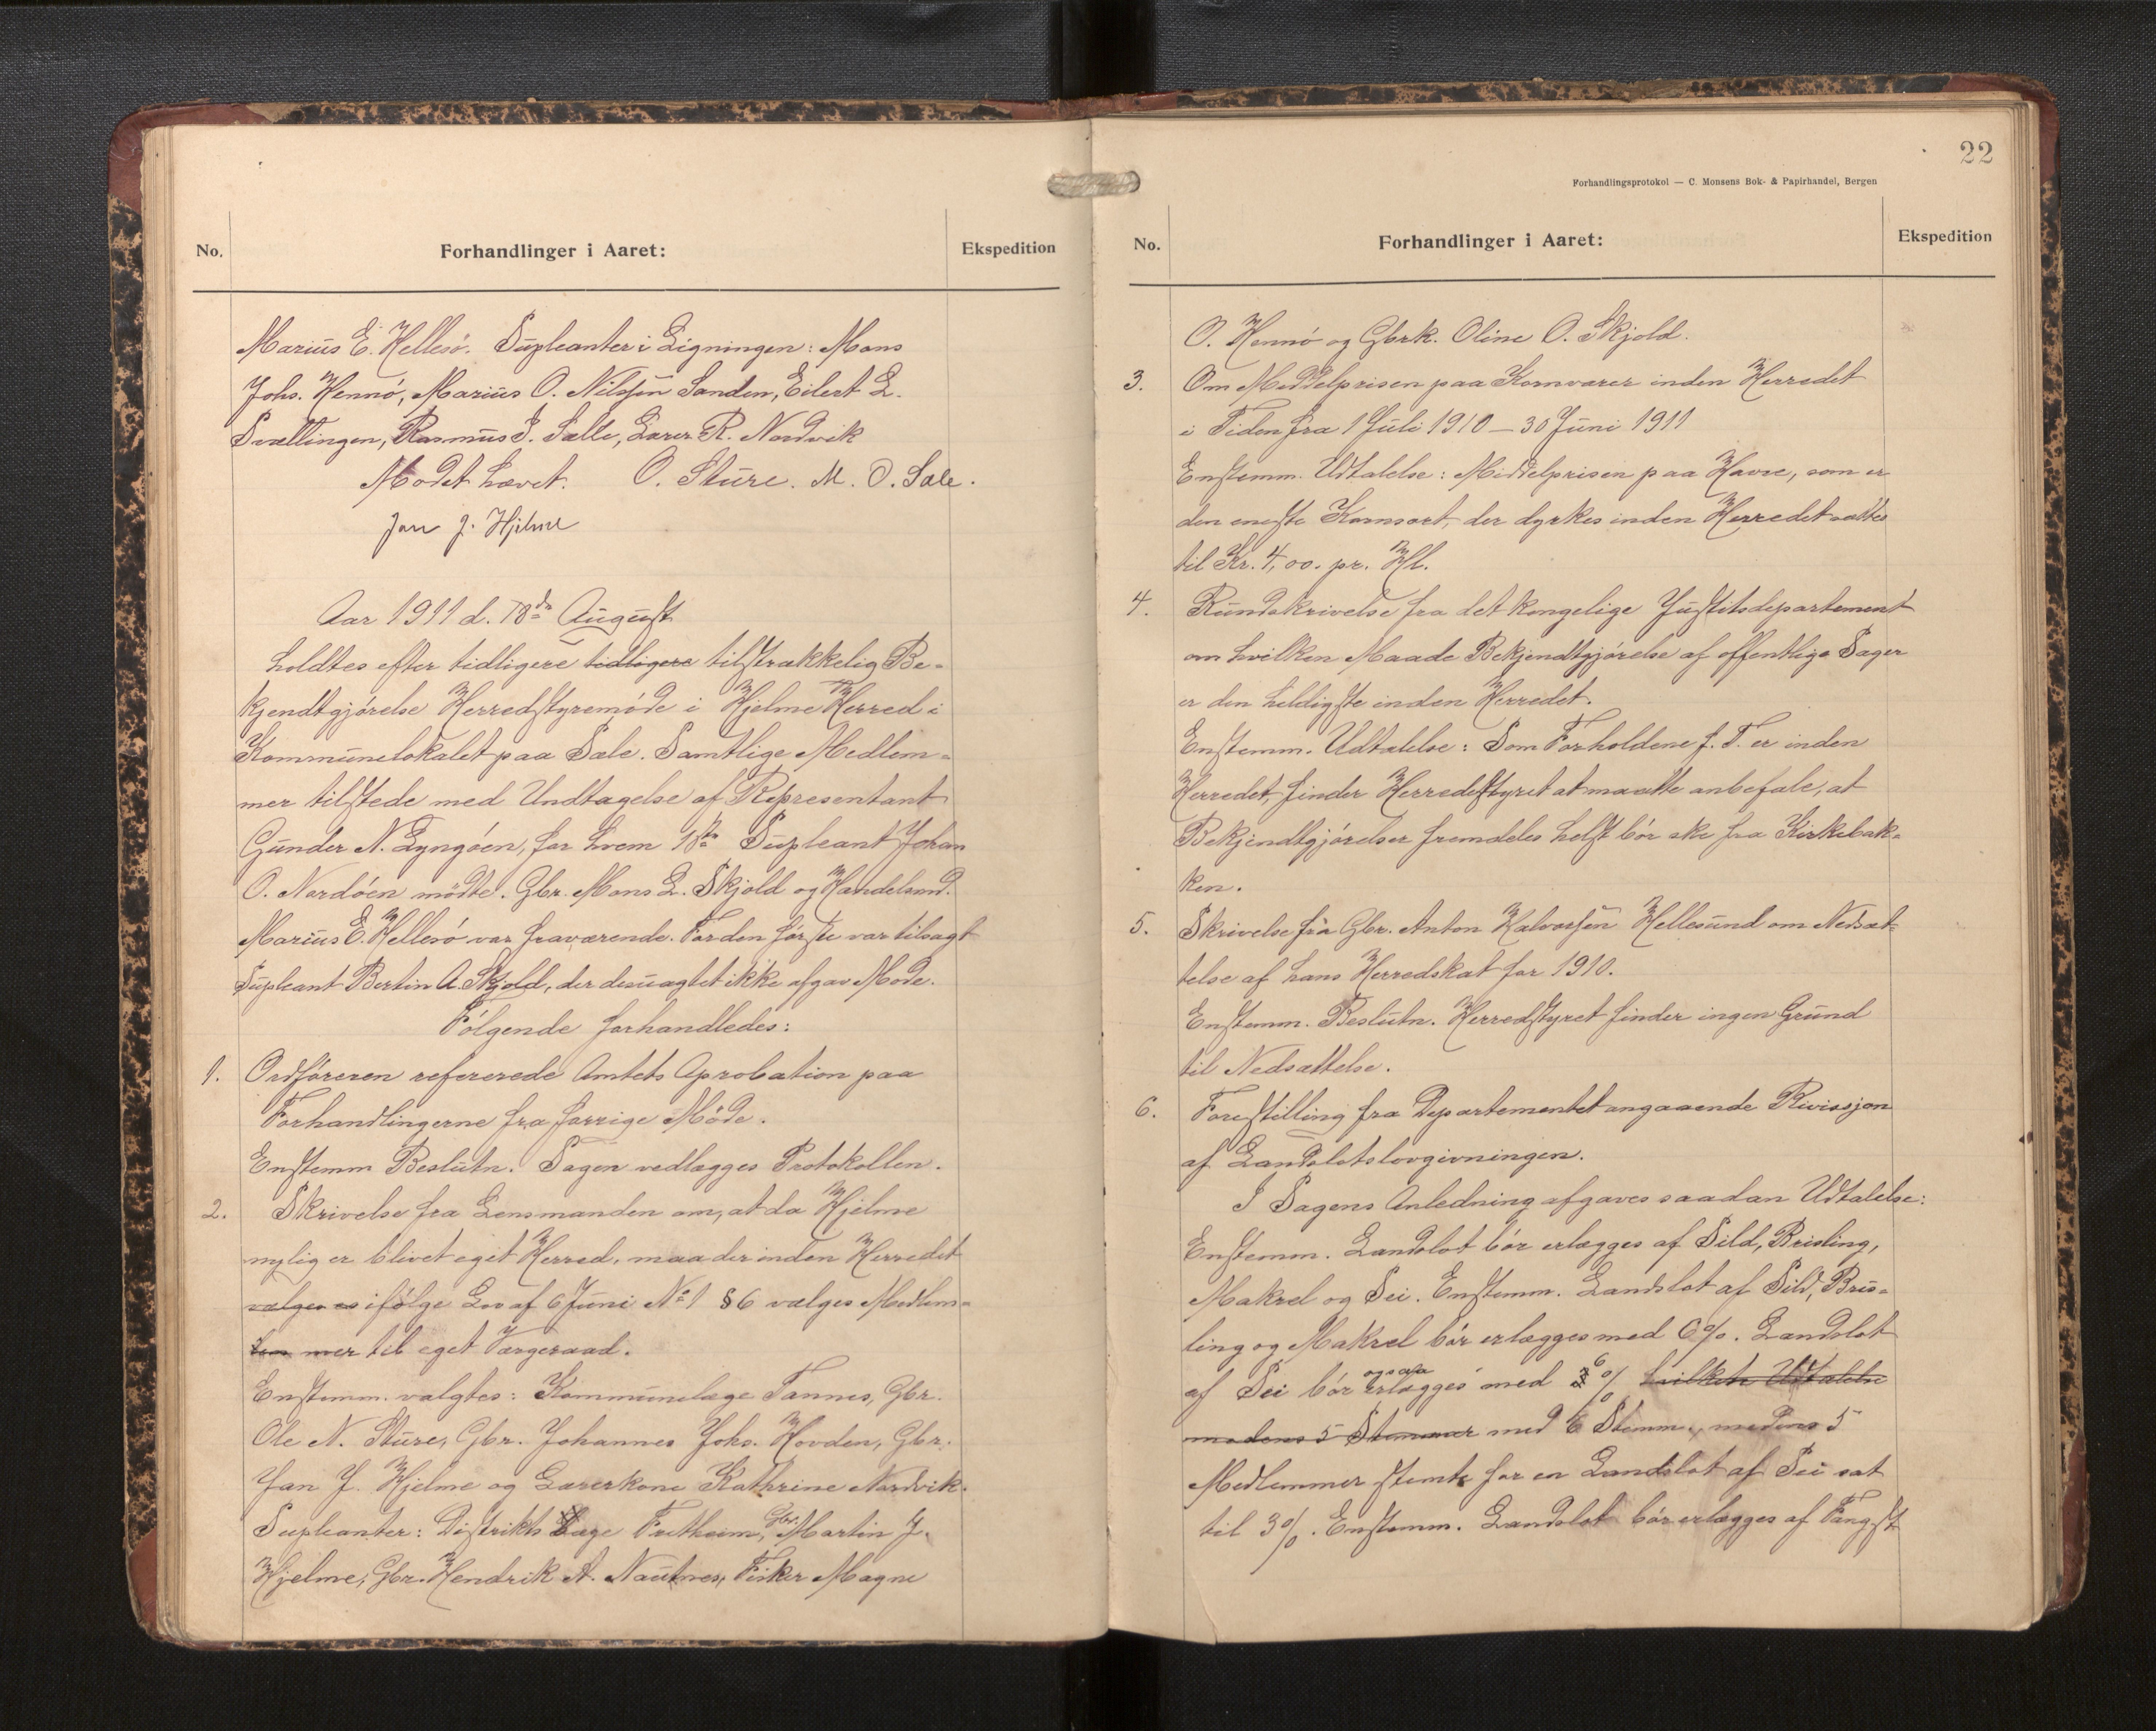 No.
Forhandlinger i Aaret:
Ekspedition
Marius E. Hellesö. Supleanter i Ligningen: Mons
Johs. Hennö, Marius O. Nilssen Sanden, Eilert L.
Svællingen, Rasmus I. Sælle, Lærer R. Nordvik
Mödet hævet. O. Sture. M. O. Sæle.
Jan J. Hjelme
Aar 1911 d. 18de August
holdtes efter tidligere tidligere tilstrækkelig Be-
kjendtgjörelse Herredstyremöde i Hjelme Herred i
Kommunelokalet paa Sæle. Samtlige Medlem-
mer tilstede med Undtagelse af Repræsentant
Gunder N. Lyngöen, for hvem 1ste Supleant Johan
O. Nordöen mödte. Gbr. Mons L. Skjold og Handelsmd.
Marius E. Hellesö var fraværende. For den förste var tilsagt
Supleant Bertin A. Skjold, der desuagtet ikke afgav Möde.
Fölgende forhandledes:
1. Ordföreren refererede Amtets Aprobation paa
Forhandlingerne fra forrige Möde.
Enstemm Beslutn. Sagen vedlægges Protokollen.
2. Skrivelse fra Lensmanden om, at da Hjelme
nylig er blivet eget Herred, maa der inden Herredet
vælges ifölge Lov af 6 Juni No 1 § 6 vælges Medlem-
mer til eget Værgeraad.
Enstemm. valgtes: Kommunelæge Tannes, Gbr.
Ole N. Sture, Gbr. Johannes Johs. Hovden, Gbr.
Jan J. Hjelme og Lærerkone Kathrine Nordvik.
Supleanter: Distrikts Læge Fretheim, Gbr. Martin J.
Hjelme, Gbr. Hendrik A. Nautnes, Fisker Magne
22
Forhandlingsprotokol — C. Monsens Bok- & Papirhandel, Bergen
No.
Forhandlinger i Aaret:
Ekspedition
O. Hennö og Gbrk. Oline O. Skjold.
3. Om Middelprisen paa Kornvarer inden Herredet
i Tiden fra 1 Juli 1910 – 30 Juni 1911
Enstemm. Udtalelse: Middelprisen paa Havre, som er
den eneste Kornsort, der dyrkes inden Herredet sættes
til Kr. 4,00. pr. Hl.
4. Rundskrivelse fra det kongelige Justitsdepartement
om hvilken Maade Bekjendtgjörelse af offentlige Sager
er den heldigste inden Herredet.
Enstemm. Udtalelse: Som Forholdene f. T. er inden
Herredet, finder Herredsstyret at maatte anbefale, at
Bekjendtgjörelser fremdeles helst bör ske fra Kirkebak-
ken.
5. Skrivelse fra Gbr. Anton Halvorsen Hellesund om Nedsæt-
telse af hans Herredskat for 1910.
Enstemm. Beslutn. Herredstyret finder ingen Grund
til Nedsættelse.
6. Forestilling fra Departementet angaaende Rivisjon
af Landslotslovgivningen.
I Sagens Anledning afgaves saadan Udtalelse:
Enstemm. Landslot bör erlægges af Sild, Brisling,
Makrel og Sei. Enstemm. Landslot af Sild, Bris-
ling og Makrel bör erlægges med 6%. Landslot
af Sei bör ogsaa erlægges med 6 % hvilken Udtalelse
medens 5 Stemmer med 6 Stemm., medens 5
Medlemmer stemte for en Landslot af Sei sat
til 3%. Enstemm. Landslot bör erlægges af Fangst